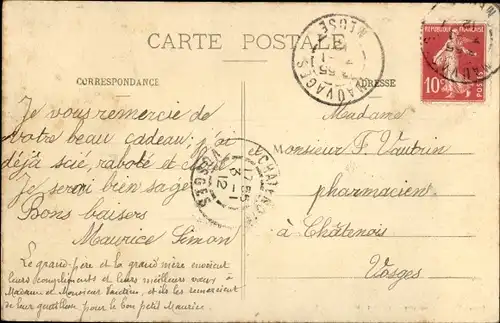 CARTE POSTALE
CORRESPONDANCE
ADRESSE
REPUBLIQUE FRANÇAISE
10
MAUVAGES
MEUSE
Je vous remercie de
votre beau cadeau; j'ai
déjà scié, raboté et
Je serai bien sage
Bons baisers
Maurice Simon
Le grand-père et la grand mère envoient
leurs compliments et leurs meilleurs vœux à
Madame et Monsieur Vautrin, et ils les remercient
de leur gentillesse pour le bon petit Maurice.
CHATENOIS
17 55
3 - 1
12
VOSGES
Madame
Monsieur F. Vautrin
pharmacien
à Châtenois
Vosges